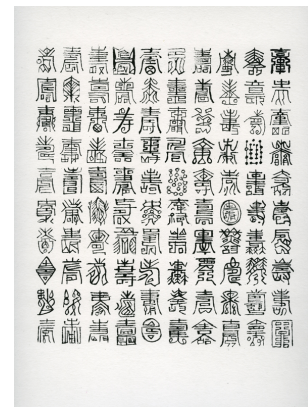 壽壽壽壽壽壽壽壽壽壽
壽壽壽壽壽壽壽壽壽壽
壽壽壽壽壽壽壽壽壽壽
壽壽壽壽壽壽壽壽壽壽
壽壽壽壽壽壽壽壽壽壽
壽壽壽壽壽壽壽壽壽壽
壽壽壽壽壽壽壽壽壽壽
壽壽壽壽壽壽壽壽壽壽
壽壽壽壽壽壽壽壽壽壽